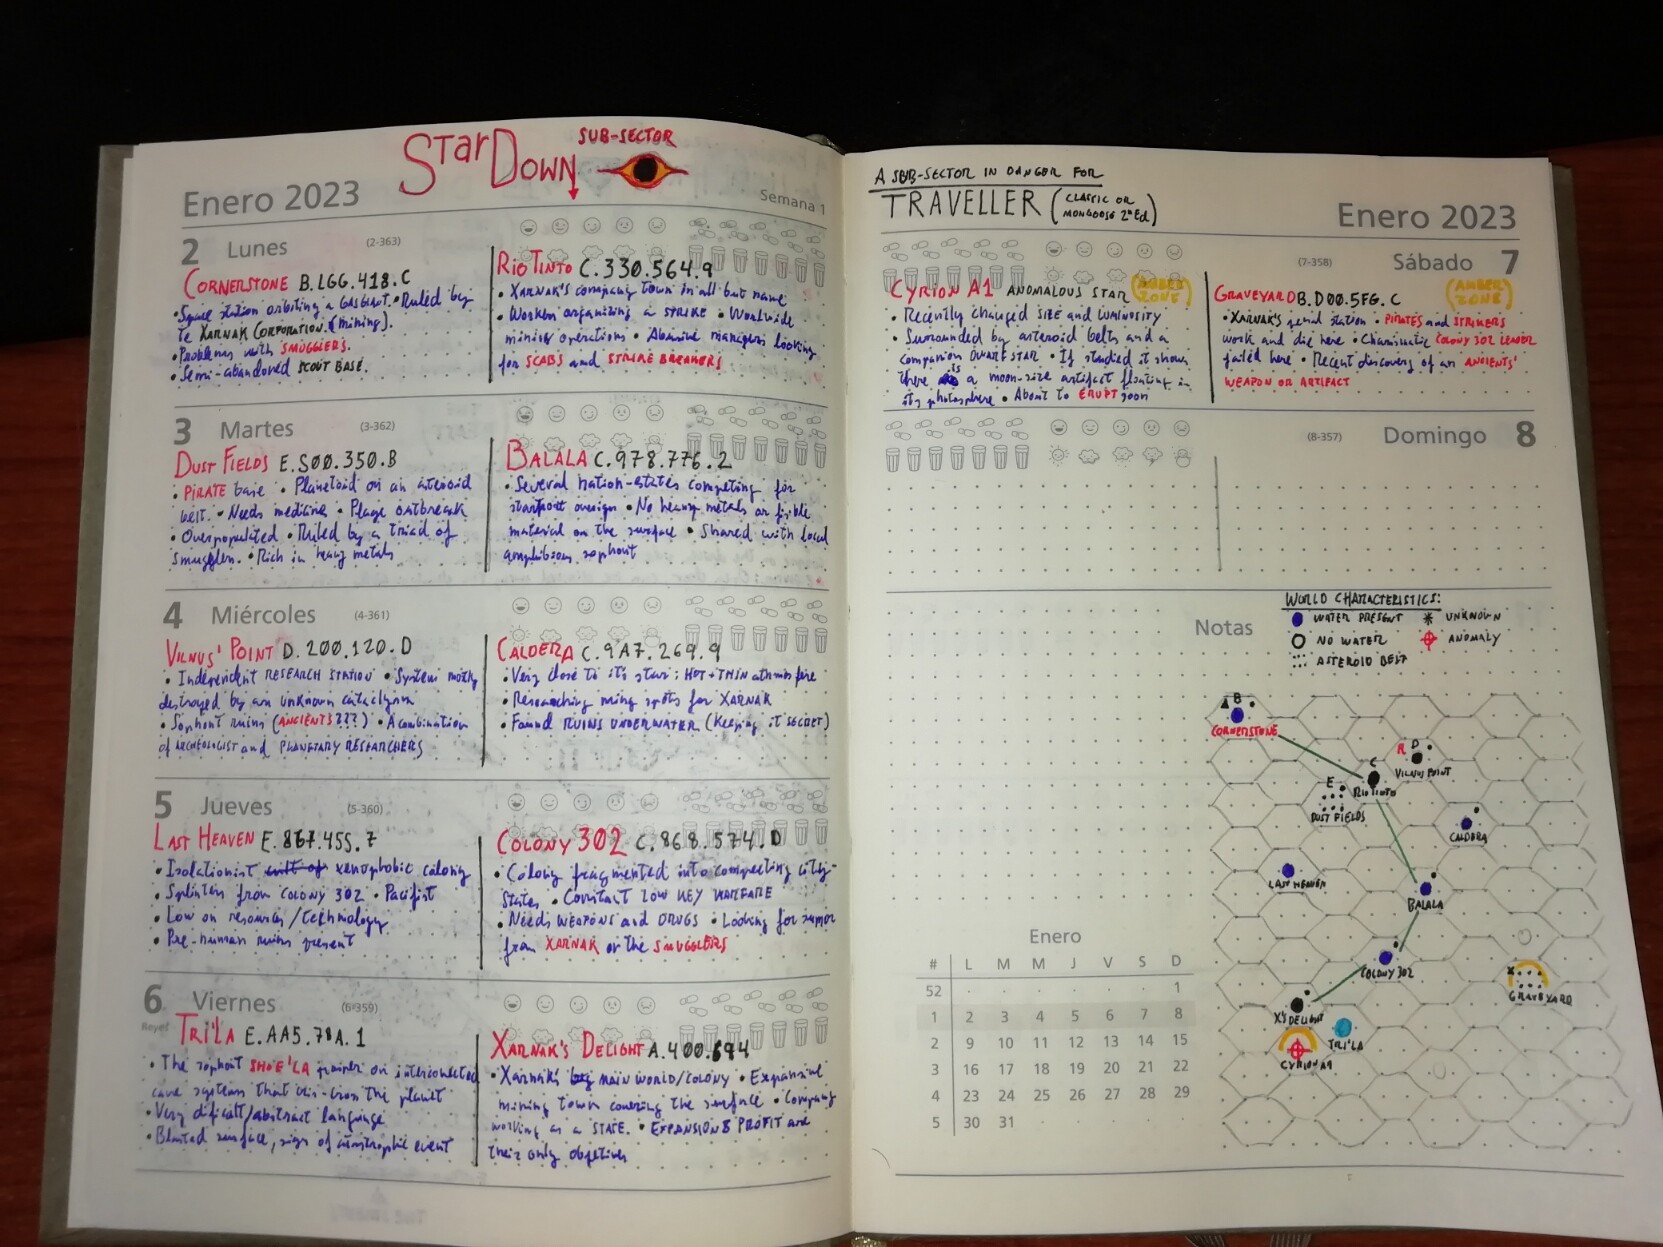 StarDown
SUB-SECTOR
Enero 2023
Semana 1
2 Lunes (2-363)
CORNERSTONE B.LGG.418.C
• Space station orbiting a GAS GIANT. • Ruled by
te XARNAK CORPORATION. (mining).
• Problems with SMUGGLERS.
• Semi-abandoned SCOUT BASE.
RIO TINTO C.330.564.9
• XARNAK'S company town in all but name
• Workers organizing a STRIKE • Worldwide
mining operations • Abusive managers looking
for SCABS and STRIKE BREAKERS
3 Martes (3-362)
DUST FIELDS E.S00.350.B
• PIRATE base • Planetoid on an asteroid
belt. • Needs medicine • Plage outbreak
• Overpopulated • Ruled by a triad of
smugglers. • Rich in heavy metals
BALALA C.978.776.2
• Several nation-states competing for
starport • No heavy metals or fisible
material on the surface • Shared with local
amphibious sophont
4 Miércoles (4-361)
VILNUS' POINT D.200.120.D
• Independent RESEARCH STATION • System mostly
destroyed by an unknown cataclysm
• Sophont ruins (ANCIENTS???) • A combination
of ARCHEOLOGIST and PLANETARY RESEARCHERS
CALDERA C.9A7.269.9
• Very close to it's star: HOT + THIN
• Researching mining spots for XARNAK
• Found RUINS UNDERWATER (Keeping it SECRET)
5 Jueves (5-360)
LAST HEAVEN E.867.455.7
• Isolationist xenophobic colony
• Splinter from COLONY 302 • Pacifist
• Low on resources/technology
• Pre-human ruins present
COLONY 302 C.868.574.D
• Colony fragmented into competing city
states • Constant LOW KEY WARFARE
• Needs WEAPONS and DRUGS • Looking for
from XARNAK or the SMUGGLERS
6 Viernes (6-359)
Reyes
TRI'LA E.AA5.78A.1
• The sophont SHO'E'LA prosper on interconnected
cave systems that cris-cross the planet
• Very dificult/abstract language
• Blasted surface, sign of catastrophic event
XARNAK'S DELIGHT A.400.694
• Xarnak's MAIN WORLD/COLONY • Expansive
mining town covering the surface • Company
working as a STATE. • EXPANSION & PROFIT are
their only objetives
A SUB-SECTOR IN DANGER FOR
TRAVELLER (CLASSIC OR
MONGOOSE 2nd Ed)
Enero 2023
(7-358) Sábado 7
CYRION A1 ANOMALOUS STAR (AMBER ZONE)
• Recently changed SIZE and LUMINOSITY
• Surrounded by asteroid belts and a
companion DWARF STAR • If studied it shows
there is a moon-size artifact floating in
its photosphere • About to ERUPT soon
GRAVEYARD B.D00.5FG.C (AMBER ZONE)
• XARNAK's penal station • PIRATES and STRIKERS
work and die here • Charismatic COLONY 302 LEADER
jailed here • Recent discovery of an ANCIENTS'
WEAPON OR ARTIFACT
(8-357) Domingo 8
Notas
WORLD CHARACTERISTICS:
WATER PRESENT
UNKNOWN
NO WATER
ANOMALY
ASTEROID BELT
B
CORNERSTONE
R D
VILNUS POINT
C
RIO TINTO
E
DUST FIELDS
CALDERA
LAST HEAVEN
BALALA
COLONY 302
GRAVEYARD
X'S DELIGHT
TRI'LA
CYRION A1
Enero
# L M M J V S D
52 1
1 2 3 4 5 6 7 8
2 9 10 11 12 13 14 15
3 16 17 18 19 20 21 22
4 23 24 25 26 27 28 29
5 30 31